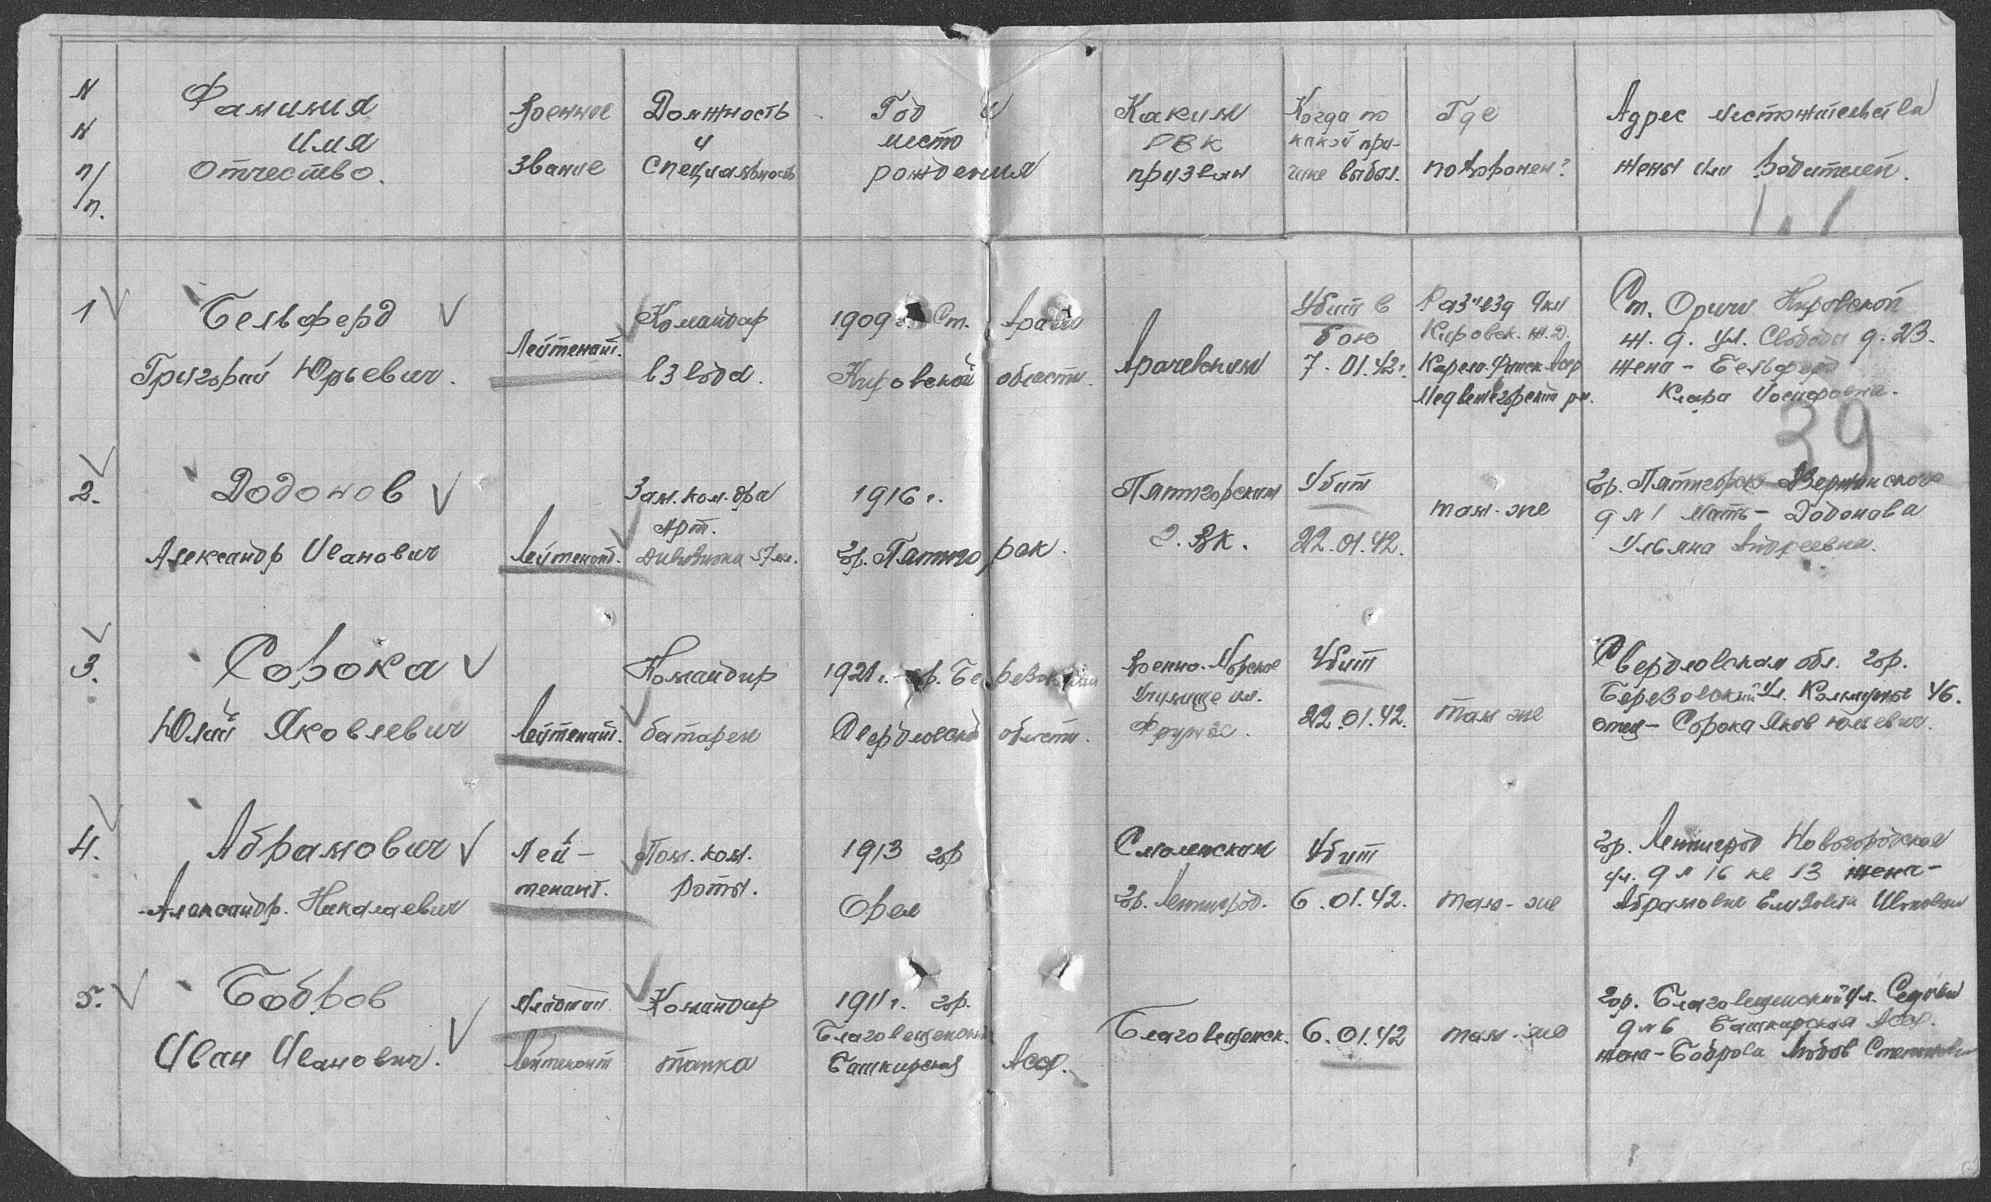 N
N
п/
/п.
Фамилия
Имя
Отчество.
Военное
звание
Должность
и
специальность
Год и
место
рождения
Каким
РВК
призван
Когда по
какой при-
чине выбыл.
Где
похоронен?
Адрес местожительства
жены или родителей.
1
Бельферд
Григорий Юрьевич.
Лейтенант.
Командир
взвода.
1909 г. Ст.
Кировской области.
Убит в
бою
7.01.42г.
Разъезд 9км
Кировск. ж.д.
Карело-Финск. Асср
Медвежегорский р-н.
Ст. Оричи Кировской
ж.д. ул. Свободы д. 23.
жена - Бельферд
Клара Иосифовна.
39
2.
Додонов
Александр Иванович
Лейтенант.
Зам. ком-дра
арт.
дивизиона 57
1916 г.
гр. Пятигорск.
Пятигорским
Г.ВК.
Убит
22.01.42.
там-же
гр. Пятигорск
д № 1 мать - Додонова
Ульяна Андреевна.
3.
Сорока
Юлий Яковлевич
Лейтенант.
Командир
батареи
1921 г. гр. Березовский
Свердловской области.
Военно-Морское
Училище им.
Фрунзе.
Убит
22.01.42.
там же
Свердловская обл. гор.
Березовский ул. Коммуны 46.
отец - Сорока Яков Юльевич.
4.
Абрамович
Александр. Николаевич
Лей-
тенант.
Пом. ком.
роты.
1913 гор
Орел
Смолинским
гр. Ленинград.
Убит
6.01.42.
там-же
гр. Ленинград Новгородская
ул. д № 16 кв 13 жена -
Абрамович Елизавета Ивановна
5.
Бобров
Иван Иванович.
Младший
Лейтенант
Командир
танка
1911 г. гор.
Благовещенск
Башкирской Асср.
Благовещенск.
6.01.42
там-же
гор. Благовещенский ул. Седова
д № 6 Башкирская Асср.
жена - Боброва Любов Степановна